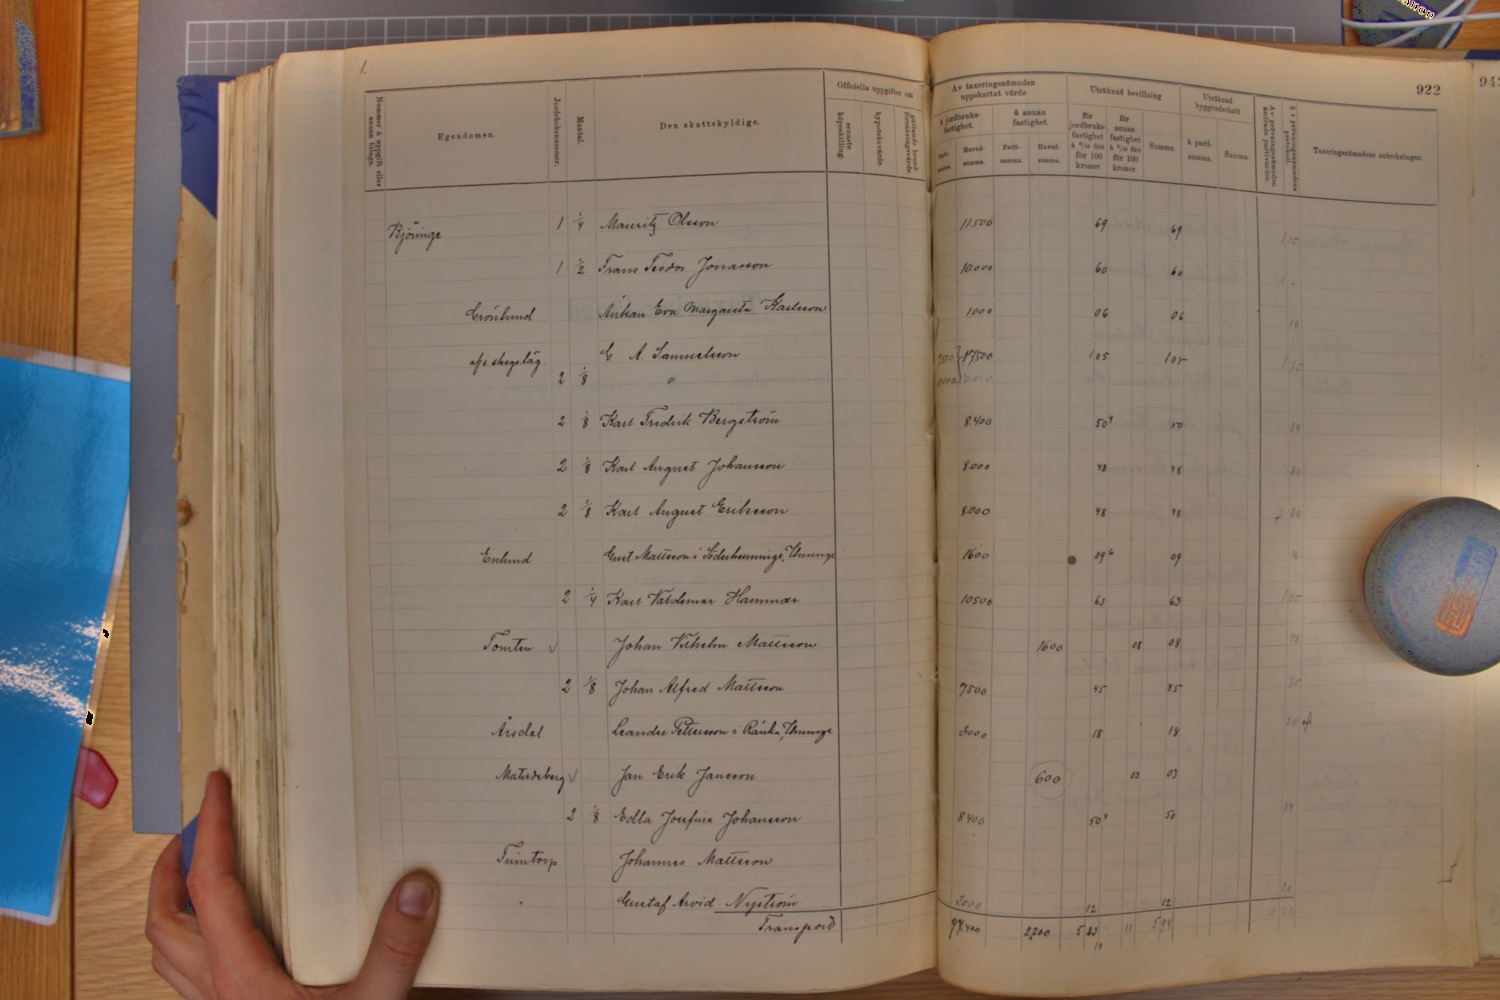 1.
922
943
Nummer å uppgift eller annan bilaga.
Egendomen.
Jordeboksnummer.
Mantal.
Den skattskyldige.
Officiella uppgifter om
senaste köpeskilling.
hypoteksvärde
gällande brandförsäkringsvärde.
Av taxeringsnämnden uppskattat värde
å jordbruksfastighet.
å annan fastighet.
Parti-summa.
Huvud-summa.
Parti-summa.
Huvud-summa.
Uträknad bevillning
för jordbruksfastighet å 6/10 öre för 100 kronor.
för annan fastighet å 5/10 öre för 100 kronor.
Summa.
Uträknad byggnadsskatt
å parti-summa.
Summa.
Av prövningsnämnden
§ i prövningsnämndens protokoll.
Taxeringsnämndens anteckningar.
Björinge 1 1/4 Mauritz Olsson 11500 69 69
1 1/2 Frans Teodor Jonasson 10.000 60 60
Grönlund Änkan Eva Margareta Karlsson 1000 06 06
G. A. Samuelsson 17500 105 105
2 1/8 "
2 1/8 Karl Fredrik Bergström 8.400 50 4 50
2 1/8 Karl August Johansson 8000 48 48
2 1/8 Karl August Eriksson 8.000 48 48
Enlund Gust Mattsson i Söderhumminge, 1600 09 6 09
2 1/4 Karl Valdemar Hammar 10500 63 63
Tomten Johan Vilhelm Mattsson 1600 08 08
2 1/8 Johan Alfred Mattsson 7500 45 45
Årsdal Leander Pettersson i Ränka, 3000 18 18
Matildeberg Jan Erik Jansson 600 03 03
2 1/8 Edla Josefina Johansson 8400 50 4 50
Johannes Mattsson
Gustaf Arvid Nyström 2000 12 12
Transport 97400 2200 583 11 594